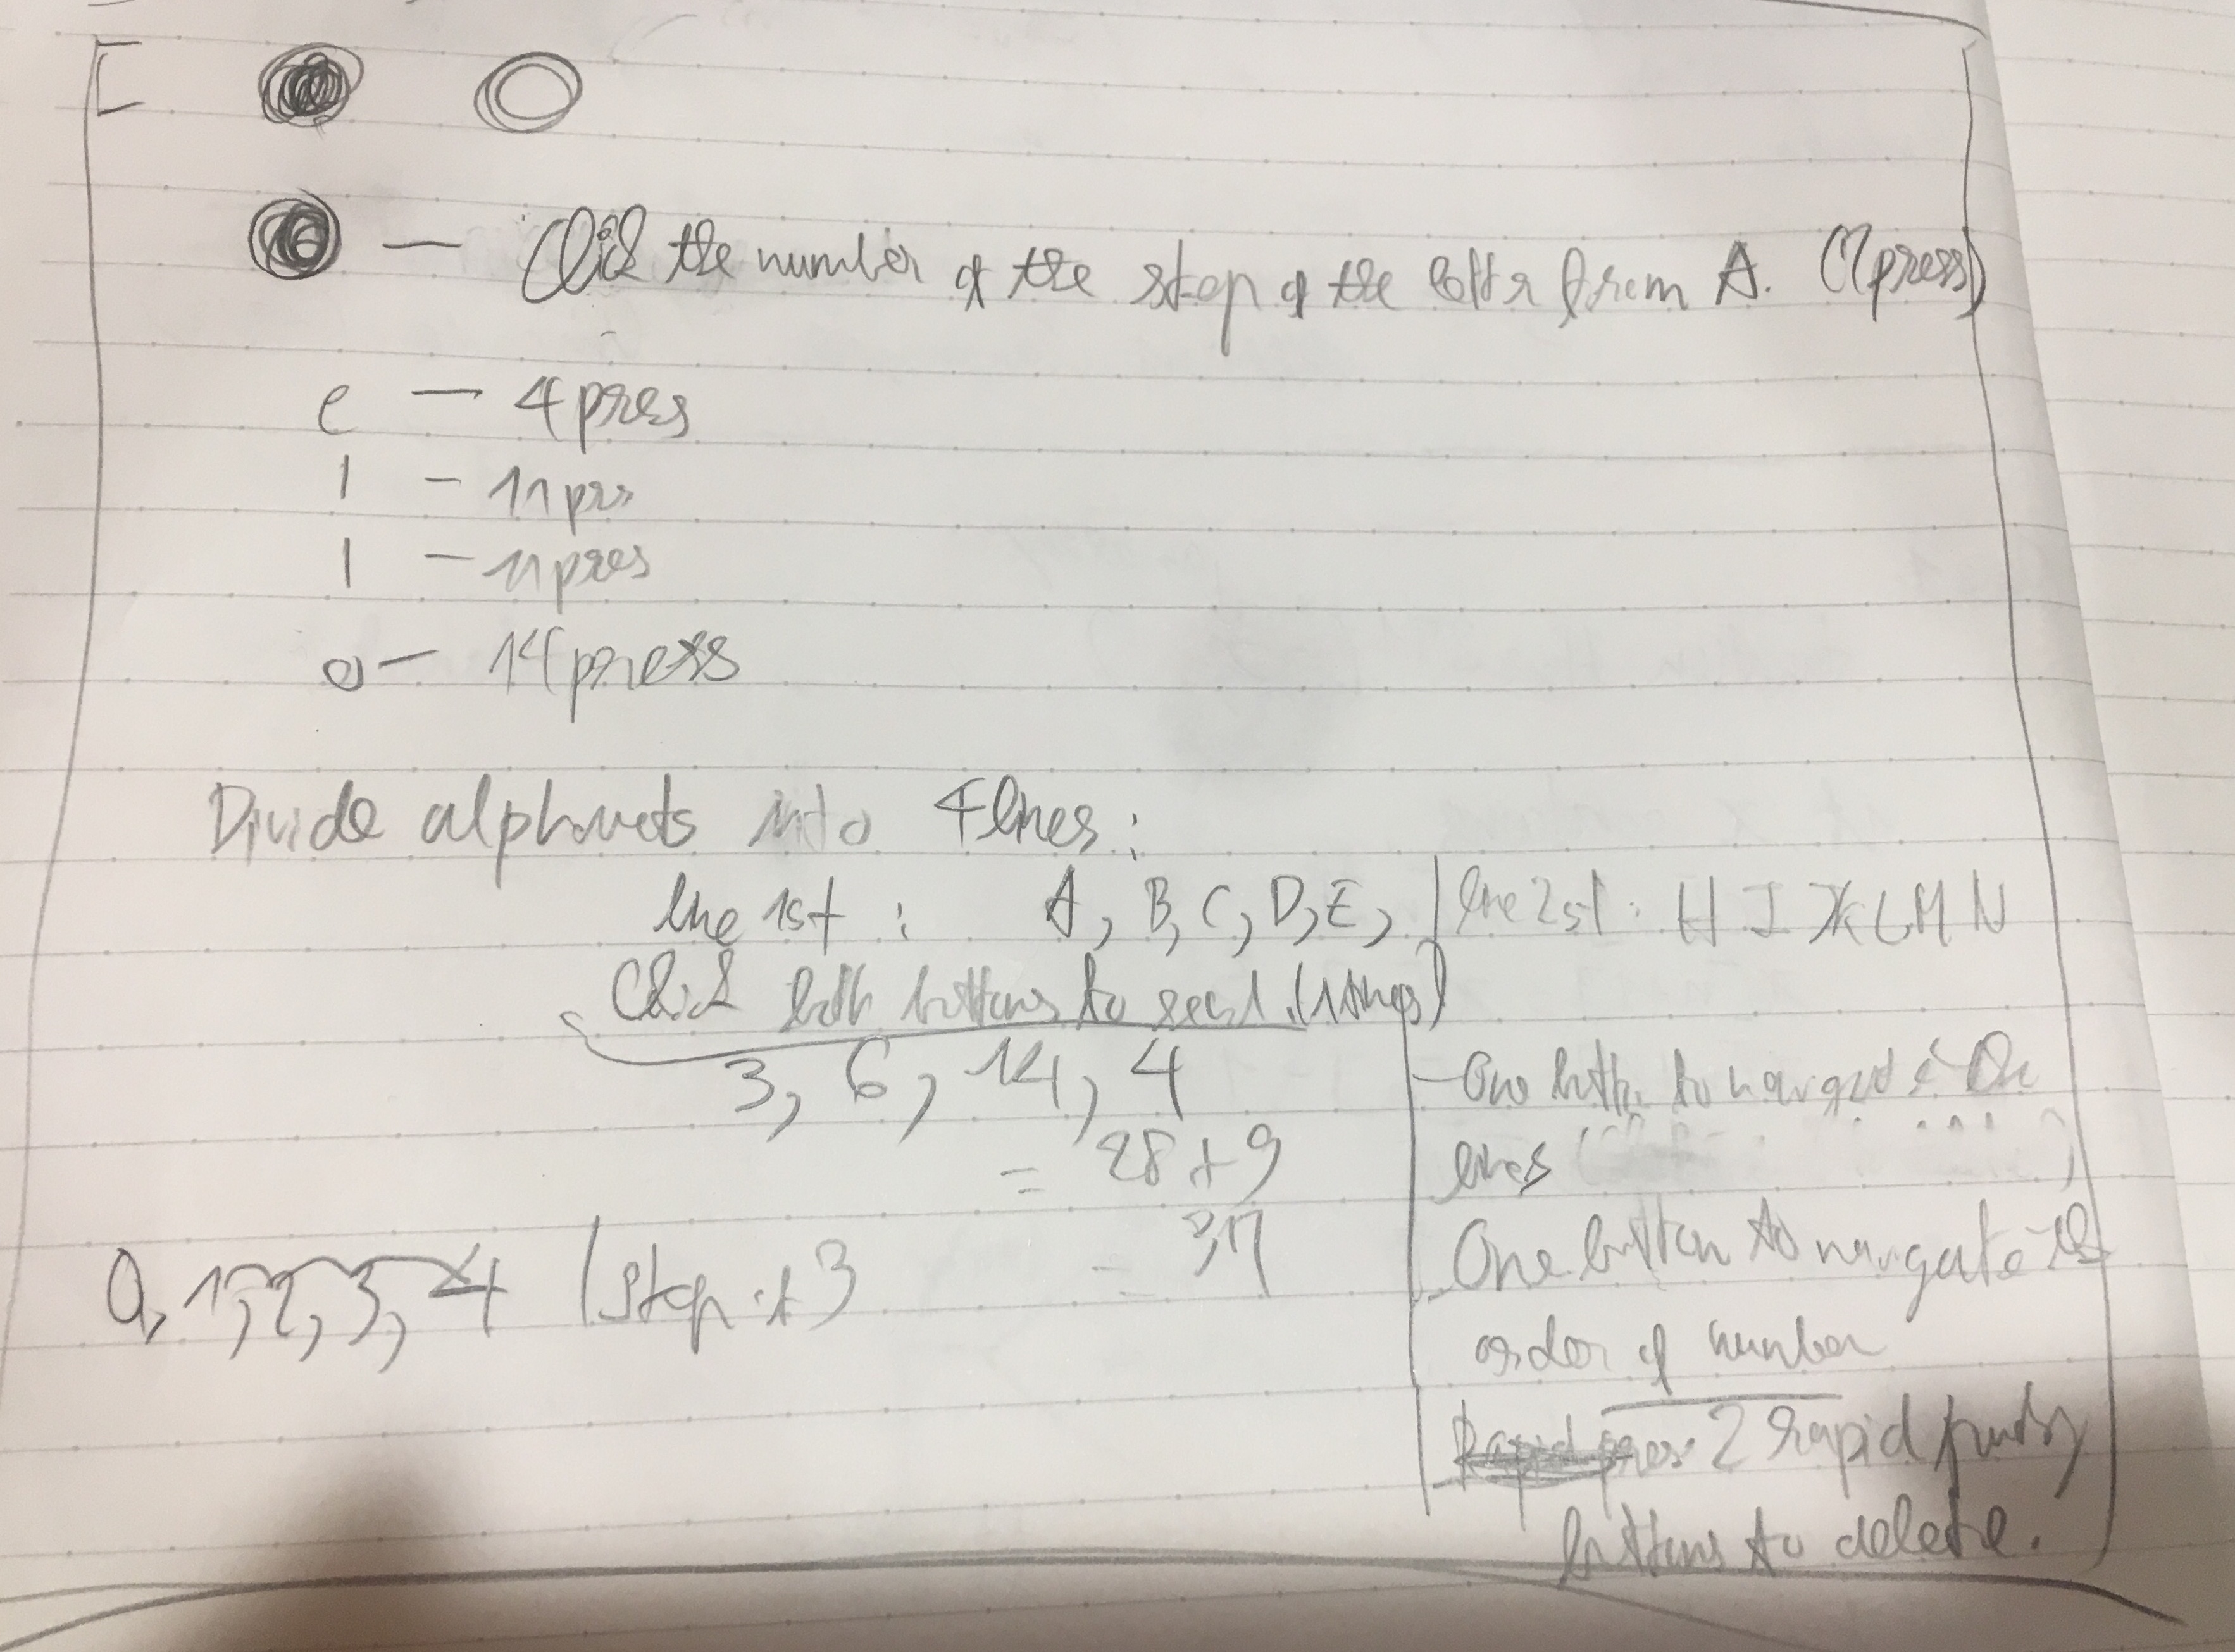 — Click the number of the step of the letter from A. (7press)
e — 4 press
l — 11 prs
l — 11 pres
o — 14 press
Divide alphavets into 4 lines:
line 1st : A, B, C, D, E, | line 2st : H I J K L M N
Click both buttons to send. (1 times)
3, 6, 14, 4
= 28 + 9
= 37
0, 1, 2, 3, 4 | Step : 3
- One button to navigate the
lines
- One button to navigate the
order of number
Rapid press 2 rapid
buttons to delete.